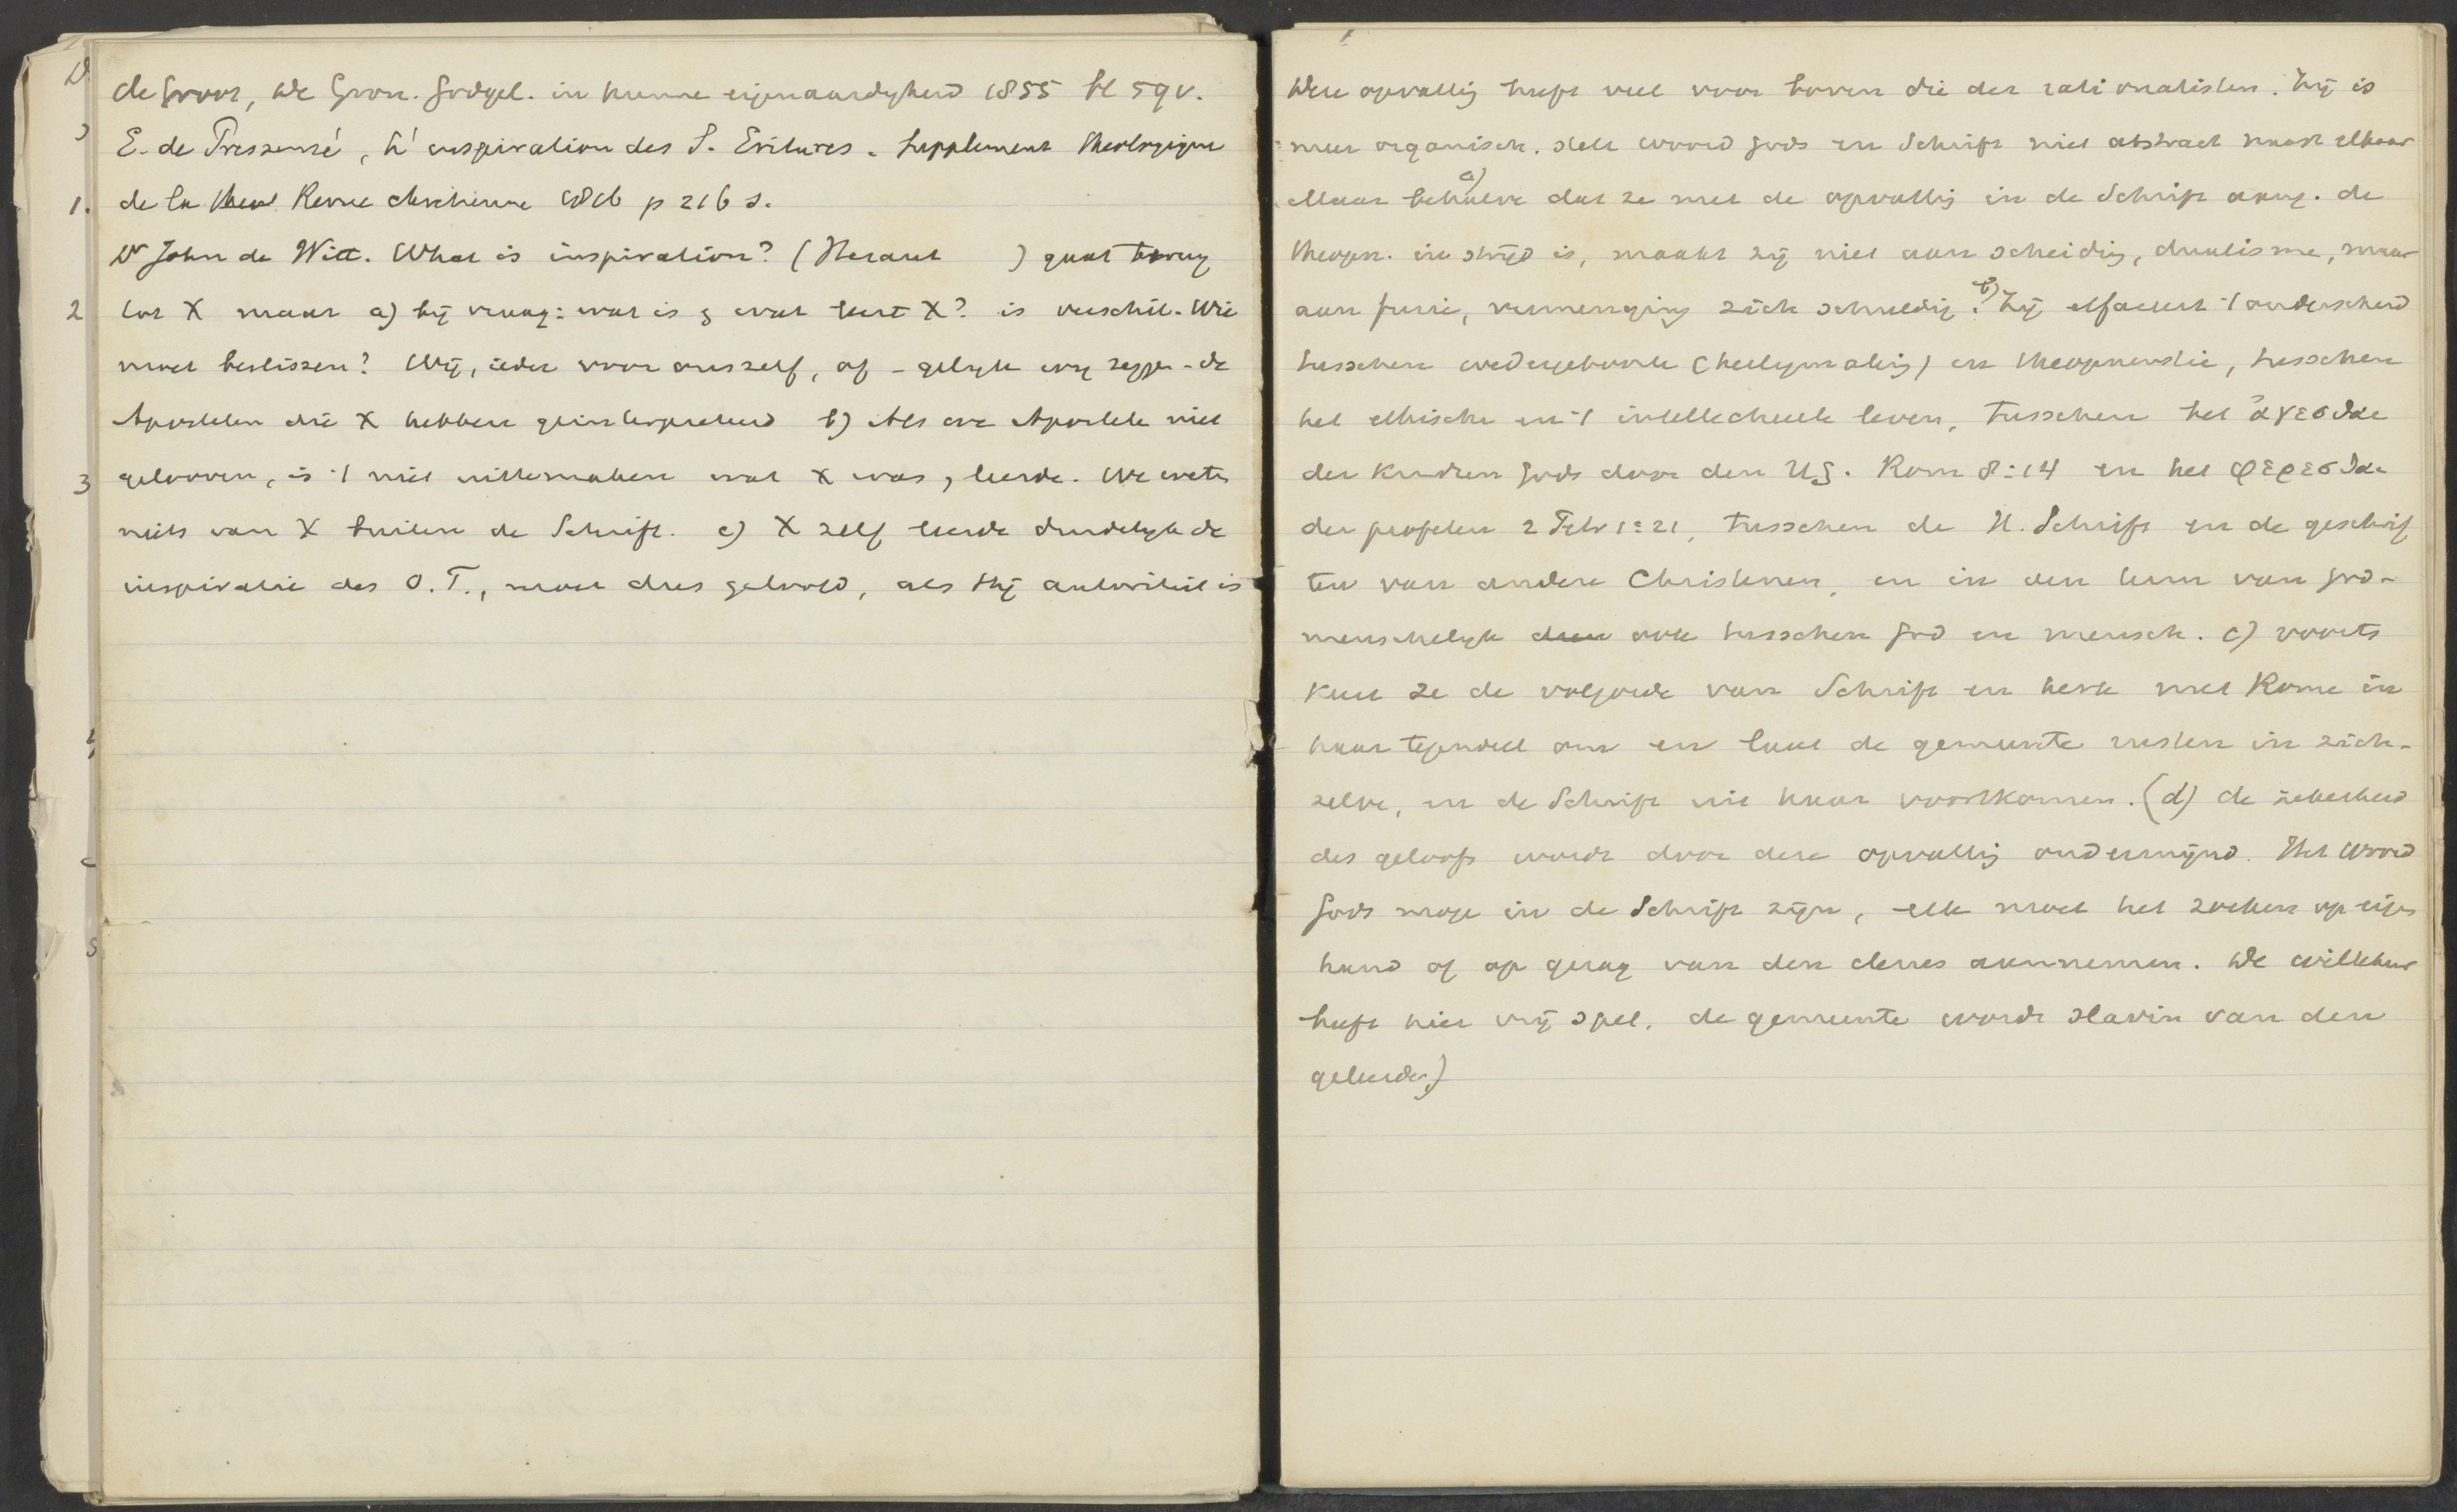 de Groot, De Gron. Godgel. in hunne eigenaardigheid 1855 bl 59 v.
E. de Pressensé, L'inspiration des S. Ecritures. Supplement théologique
de la Revue chrétienne p 216 s.
Dr John de Witt. What is inspiration? (Heraut ) gaat terug
tot X maar a) bij vraag: wat is & wat leert X? is verschil. Wie
moet beslissen? Wij, ieder voor onszelf, of - gelijk wij zeggen - de
Apostelen die X hebben geinterpreteerd b) Als we Apostelen niet
gelooven, is 't niet uittemaken wat X was, leerde. We weten
niets van X buiten de Schrift. c) X zelf leerde duidelijk de
inspiratie des O.T., moet dus geloofd, als Hij autoriteit is
Deze opvatting heeft veel voor boven die der rationalisten. Zij is
meer organisch. stelt woord Gods en Schrift niet abstract naast elkaar
Maar behalve a) dat ze met de opvatting in de Schrift aang. de
theopn. in strijd is, maakt zij niet aan scheiding, dualisme, maar
aan fusie, vermenging zich schuldig. b) Zij effaceert 't onderscheid
tusschen wedergeboorte (heiligmaking) en theopneustie, tusschen
het ethische en 't intellectueele leven, tusschen het ἀγεσθαι
der kinderen Gods door den HG. Rom 8:14 en het φερεσθαι
der profeten 2 Petr 1:21, tusschen de H. Schrift en de geschrif
ten van andere Christenen, en in den term van God-
menschelijk ook tusschen God en mensch. c) voorts
keert ze de volgorde van Schrift en kerk met Rome in
haar tegendeel om en laat de gemeente rusten in zich-
zelve, en de Schrift uit haar voortkomen. (d) de zekerheid
des geloofs wordt door deze opvatting ondermijnd. Het Woord
Gods moge in de Schrift zijn, elk moet het zoeken op eigen
hand of op gezag van den clerus aannemen. De willekeur
heeft hier vrij spel, de gemeente wordt slavin van den
geleerde)